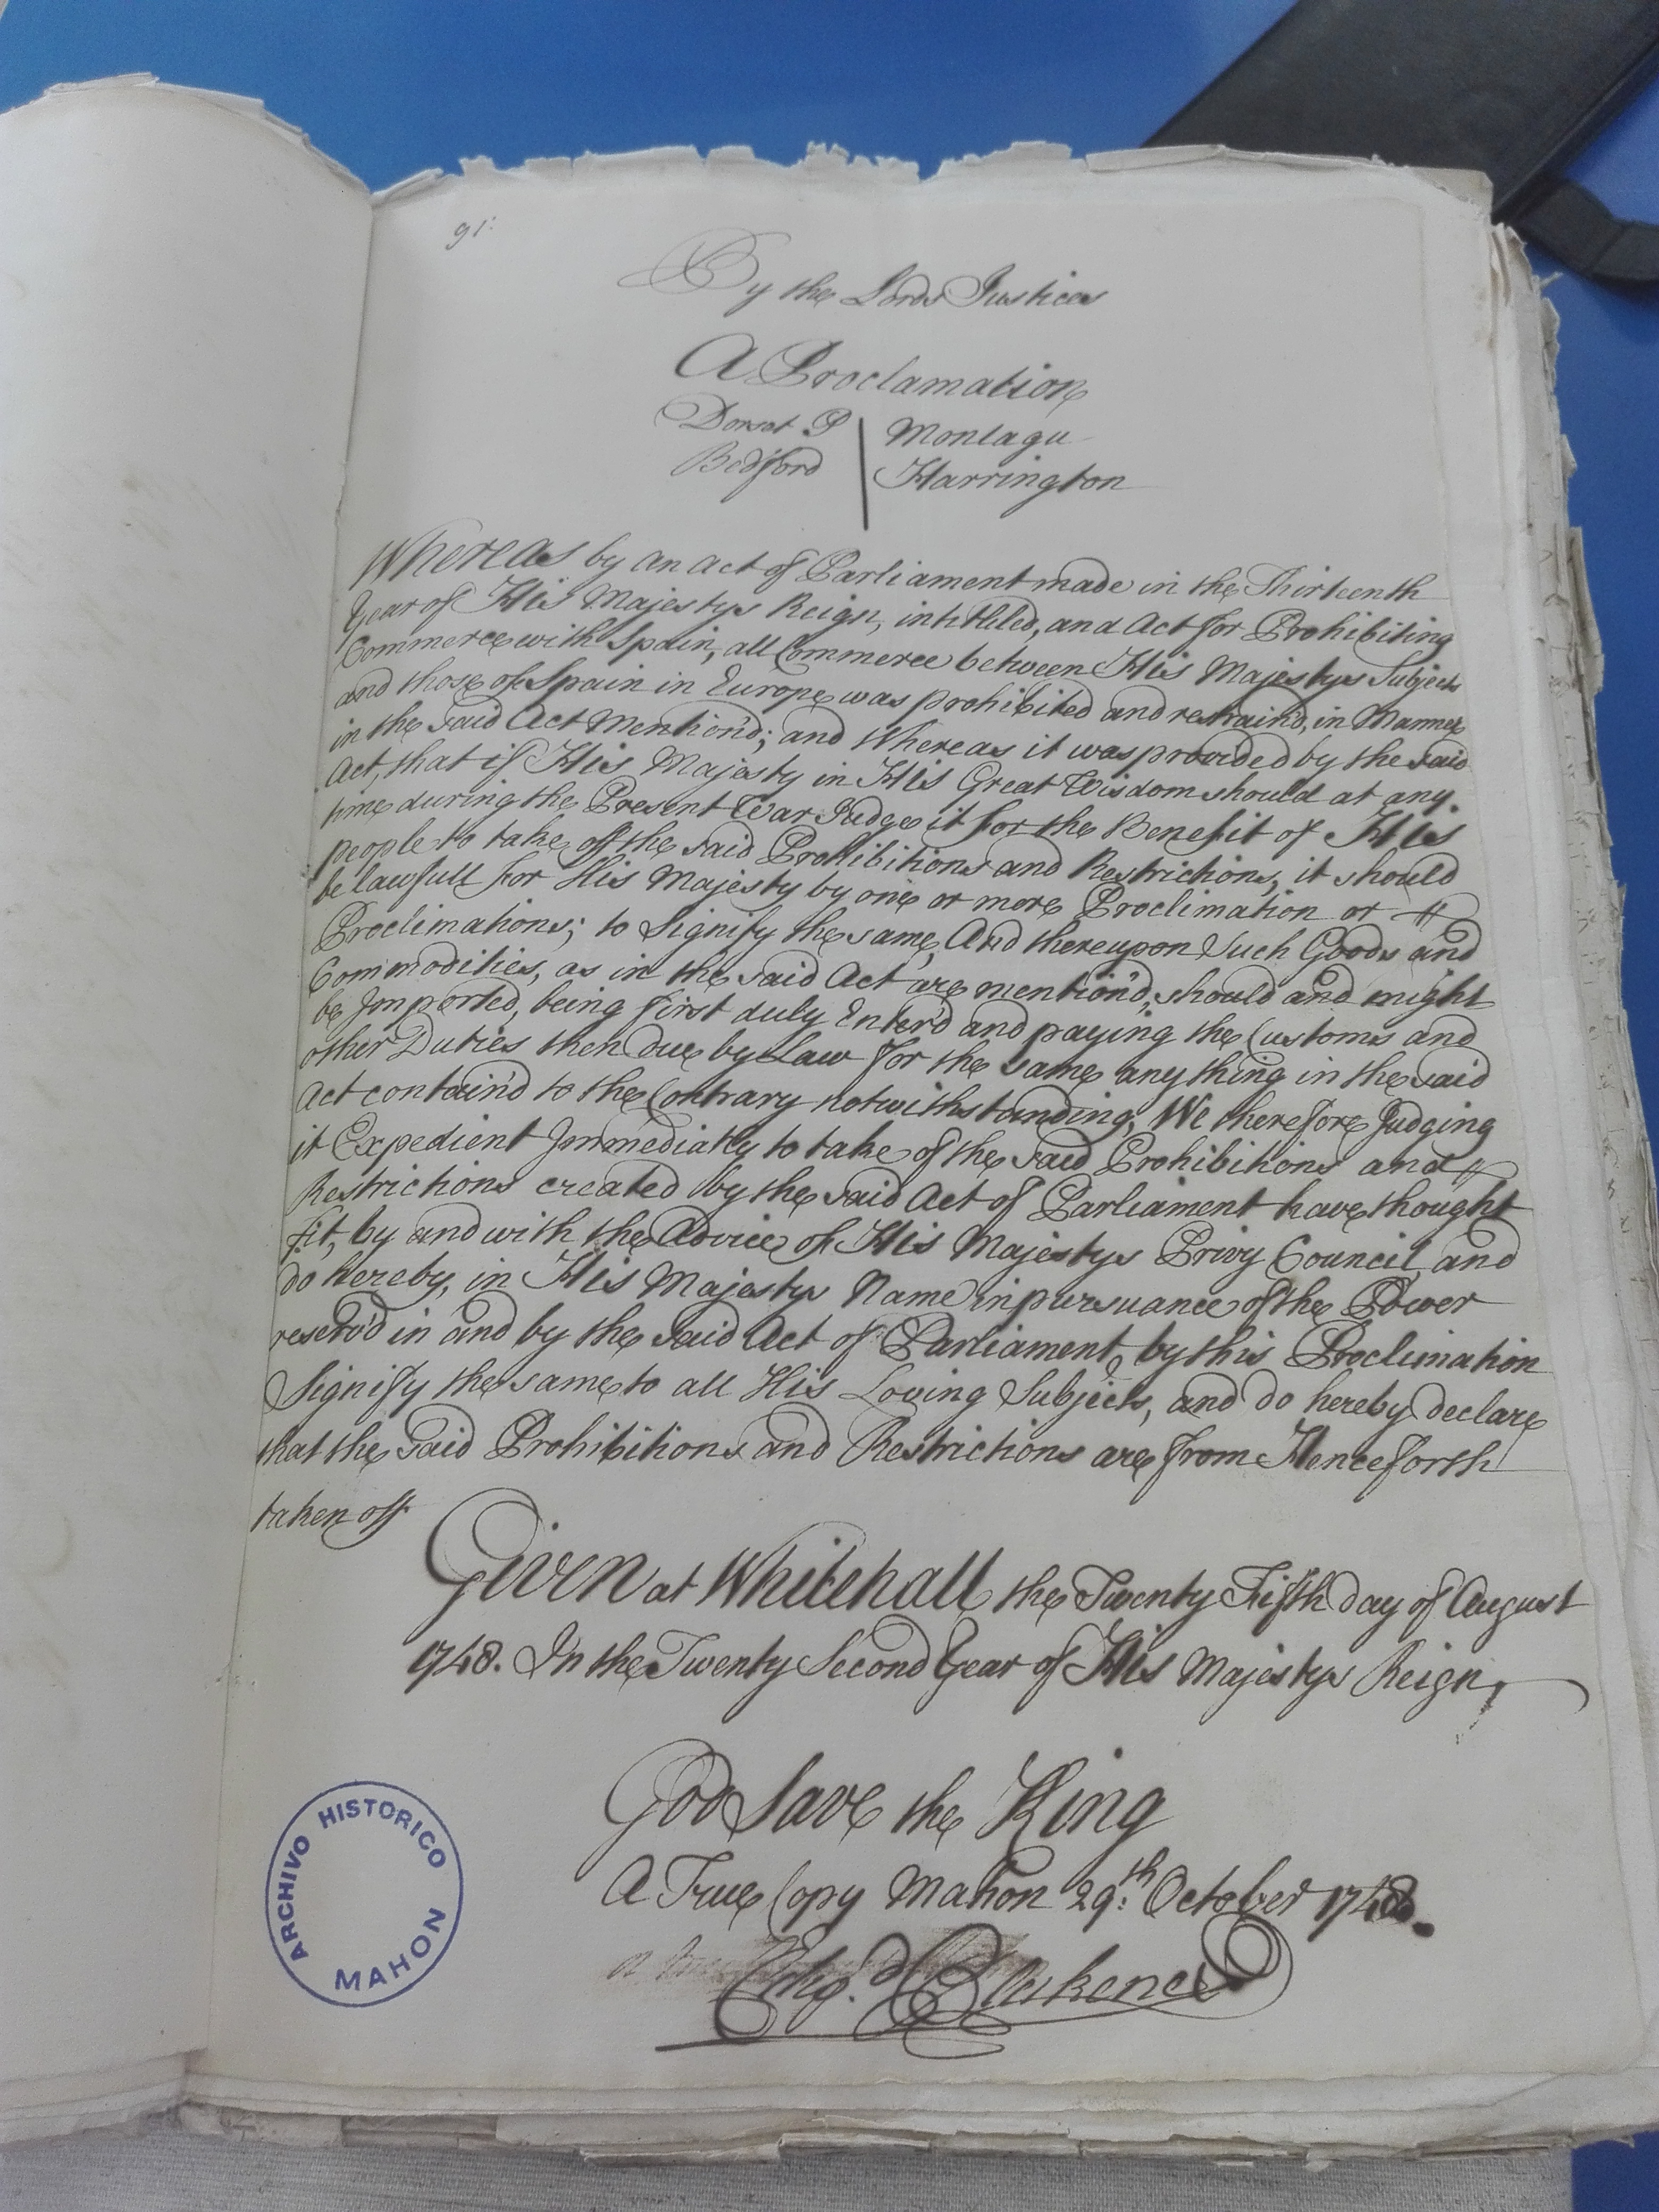 91.
By the Lords Justices
A Proclamation
Dorset P | Montagu
Bedford | Harrington
Whereas by an act of Parliament made in the Thirteenth
Year of His Majestys Reign, intitled, and Act for Prohibiting
Commerce with Spain, all Commerce between His Majestys Subjects
and those of Spain in Europe was prohibited and restraind, in Manner
in the said Act Mention'd; and Whereas it was provided by the said
Act, that if His Majesty in His Great Wisdom should at any
time during the Present War Judge it for the Benefit of His
people to take off the said Prohibitions and Restrictions, it should
be lawfull for His Majesty by one or more Proclimation or
Proclimations; to Signify the same, And thereupon Such Goods and
Commodities, as in the said Act are mention'd, should and might
be Imported, being first duly Enter'd and paying the Customs and
other Duties then due by Law for the same any thing in the said
Act contain'd to the Contrary notwithstanding, We therefore Judging
it Expedient Immediatly to take of the said Prohibitions and
Restrictions created by the said Act of Parliament have thought
fit, by and with the Advice of His Majestys Privy Council, and
do hereby, in His Majestys Name in pursuance of the Power
reserv'd in and by the said Act of Parliament, by this Proclimation
Signify the same to all His Loving Subjects, and do hereby declare
that the said Prohibitions and Restrictions are from Henceforth
taken off
Given at Whitehall the Twenty Fifth day of August
1748. In the Twenty Second Year of His Majestys Reign,
God Save the King
A True Copy Mahon 29.th October 1748.
Blakeney
ARCHIVO HISTORICO
MAHON